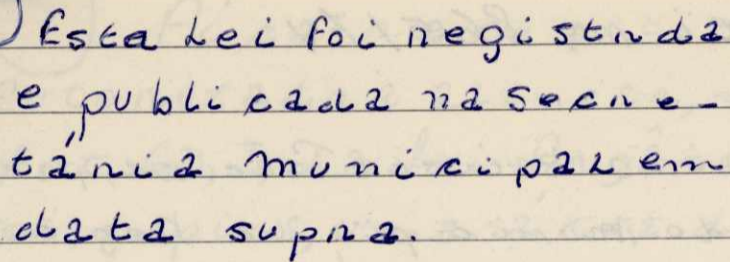 Esta Lei foi registrda
e publicada na secre-
tária municipal em
data supra.